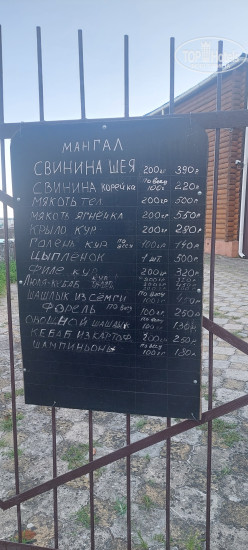 МАНГАЛ
СВИНИНА ШЕЯ 200г 390р
СВИНИНА КОРЕЙКА по весу 100г 220р
МЯКОТЬ ТЕЛ 200г 500р
МЯКОТЬ ЯГНЕНКА 200г 550р
КРЫЛО КУР 200г 290р
ГОЛЕНЬ КУР по весу 100г 140р
ЦЫПЛЕНОК 1шт 500р
ФИЛЕ КУР 200г 320р
ЛЮЛЯ-КЕБАБ КУР
ШАШЛЫК ИЗ СЕМГИ по весу 100г
ФОРЕЛЬ по весу 100г 250р
ОВОЩНОЙ ШАШЛЫК 100г 130р
КЕБАБ ИЗ КАРТОФ 200г 250р
ШАМПИНЬОНЫ по весу 100г 130р